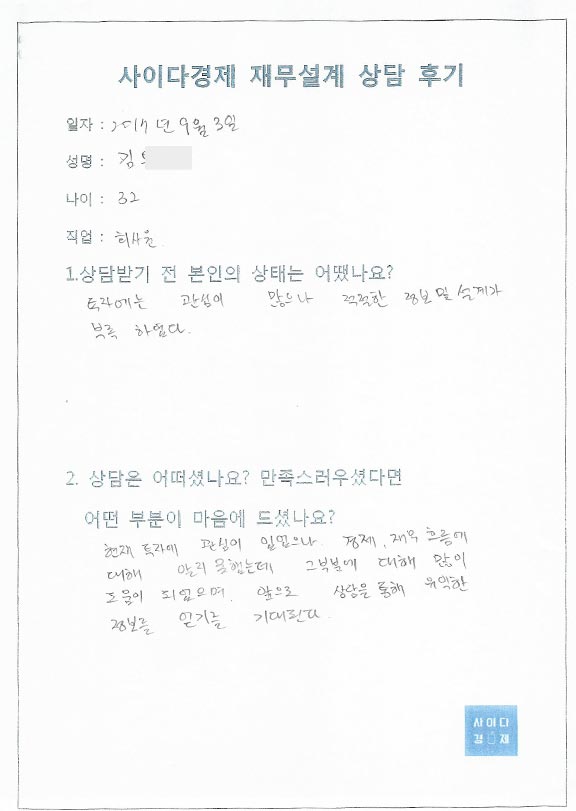 사이다경제 재무설계 상담 후기
일자 : 2017년 9월 3일
성명 : 김
나이 : 32
직업 : 회사원
1.상담받기 전 본인의 상태는 어땠나요?
투자에는 관심이 많으나 적절한 정보 및 설계가
부족 하였다.
2. 상담은 어떠셨나요? 만족스러우셨다면
어떤 부분이 마음에 드셨나요?
현재 투자에 관심이 있었으나. 경제, 재무 흐름에
대해 알지 못했는데 그부분에 대해 많이
도움이 되었으며, 앞으로 상담을 통해 유익한
정보를 얻기를 기대된다.
사이다
경제